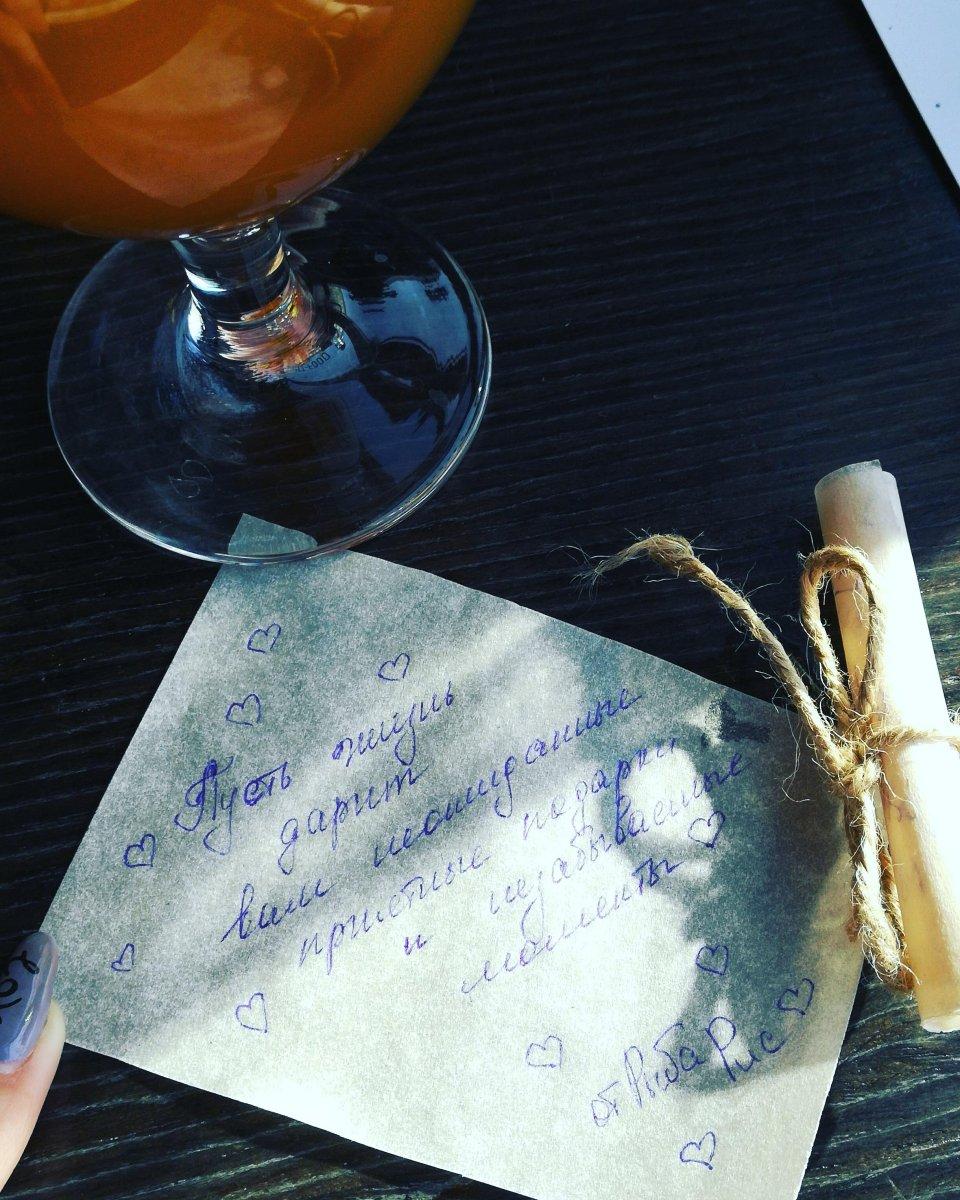 Пусть жизнь
дарит
вам неожиданные
приятные подарки
и незабываемые
моменты
от Рыба Рис